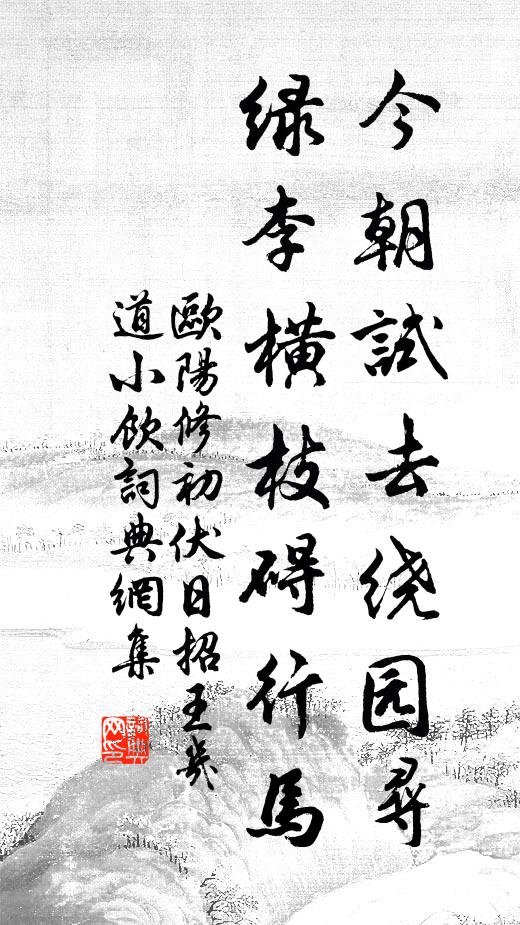 今朝試去绕园尋
緑李横枝碍行馬
歐陽修初伏日招王幾
道小飲詞典網集
詞典網印